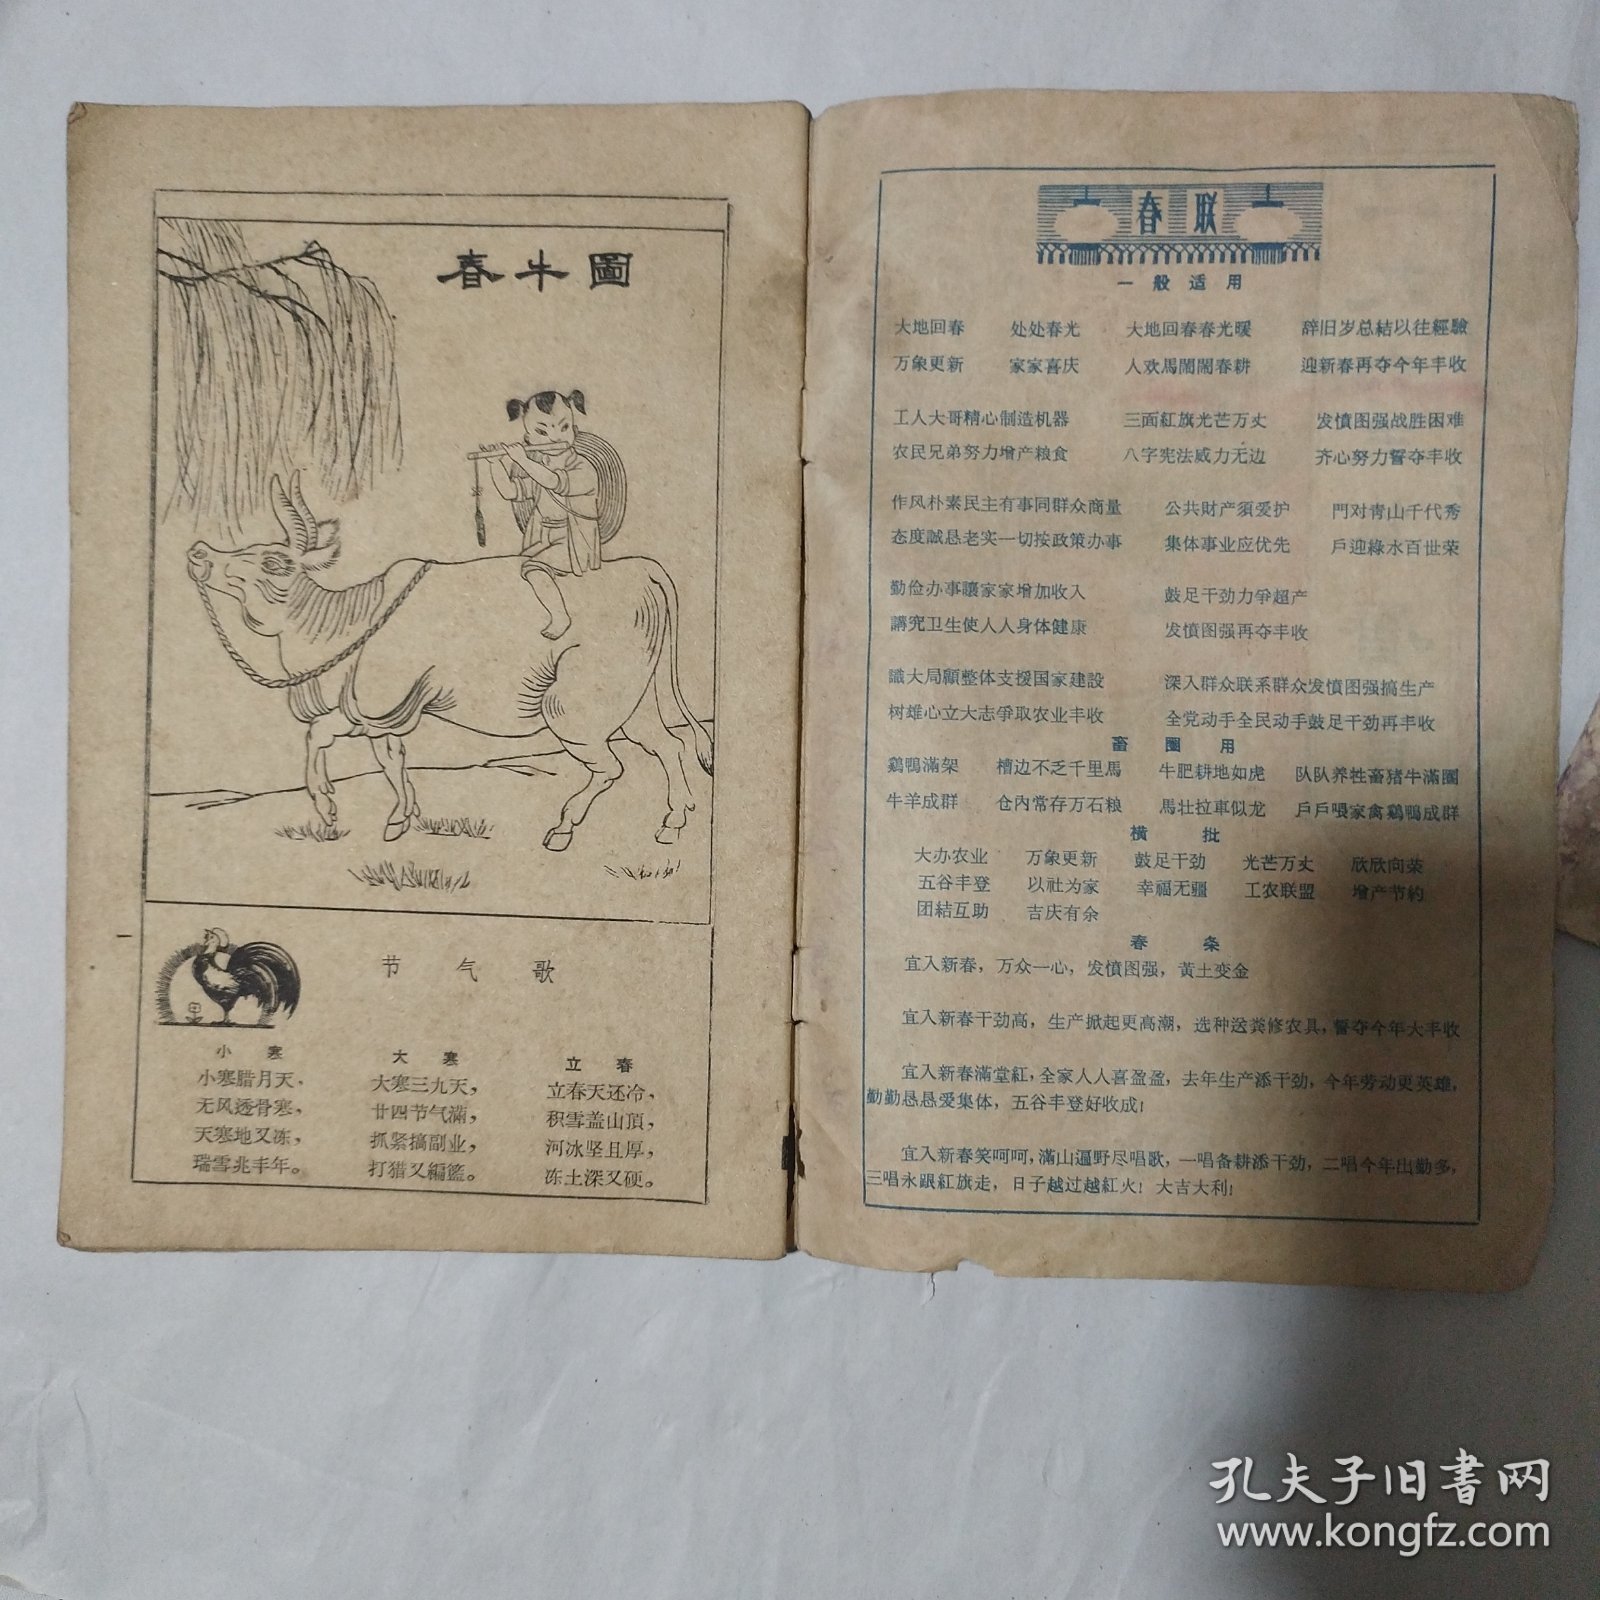 春牛圖
节气歌
小寒
小寒腊月天,
无风透骨寒,
天寒地又冻,
瑞雪兆丰年。
大寒
大寒三九天,
廿四节气满,
抓紧搞副业,
打猎又編籃。
立春
立春天还冷,
积雪盖山頂,
河冰坚且厚,
冻土深又硬。
一
春联
一般适用
大地回春 处处春光 大地回春春光暖 辞旧岁总結以往經驗
万象更新 家家喜庆 人欢馬鬧鬧春耕 迎新春再夺今年丰收
工人大哥精心制造机器 三面紅旗光芒万丈 发憤图强战胜困难
农民兄弟努力增产粮食 八字宪法威力无边 齐心努力誓夺丰收
作风朴素民主有事同群众商量 公共財产須爱护 門对青山千代秀
态度誠恳老实一切按政策办事 集体事业应优先 戶迎綠水百世荣
勤俭办事讓家家增加收入 鼓足干劲力爭超产
講究卫生使人人身体健康 发憤图强再夺丰收
識大局顧整体支援国家建設 深入群众联系群众发憤图强搞生产
树雄心立大志爭取农业丰收 全党动手全民动手鼓足干劲再丰收
畜圈用
鷄鴨滿架 槽边不乏千里馬 牛肥耕地如虎 队队养牲畜猪牛滿圈
牛羊成群 仓內常存万石粮 馬壮拉車似龙 戶戶喂家禽鷄鴨成群
橫批
大办农业 万象更新 鼓足干劲 光芒万丈 欣欣向荣
五谷丰登 以社为家 幸福无疆 工农联盟 增产节約
团結互助 吉庆有余
春条
宜入新春,万众一心,发憤图强,黃土变金
宜入新春干劲高,生产掀起更高潮,选种送粪修农具,誓夺今年大丰收
宜入新春滿堂紅,全家人人喜盈盈,去年生产添干劲,今年劳动更英雄,
勤勤恳恳爱集体,五谷丰登好收成!
宜入新春笑呵呵,滿山遍野尽唱歌,一唱备耕添干劲,二唱今年出勤多,
三唱永跟紅旗走,日子越过越紅火!大吉大利!
孔夫子旧书网
www.kongfz.com